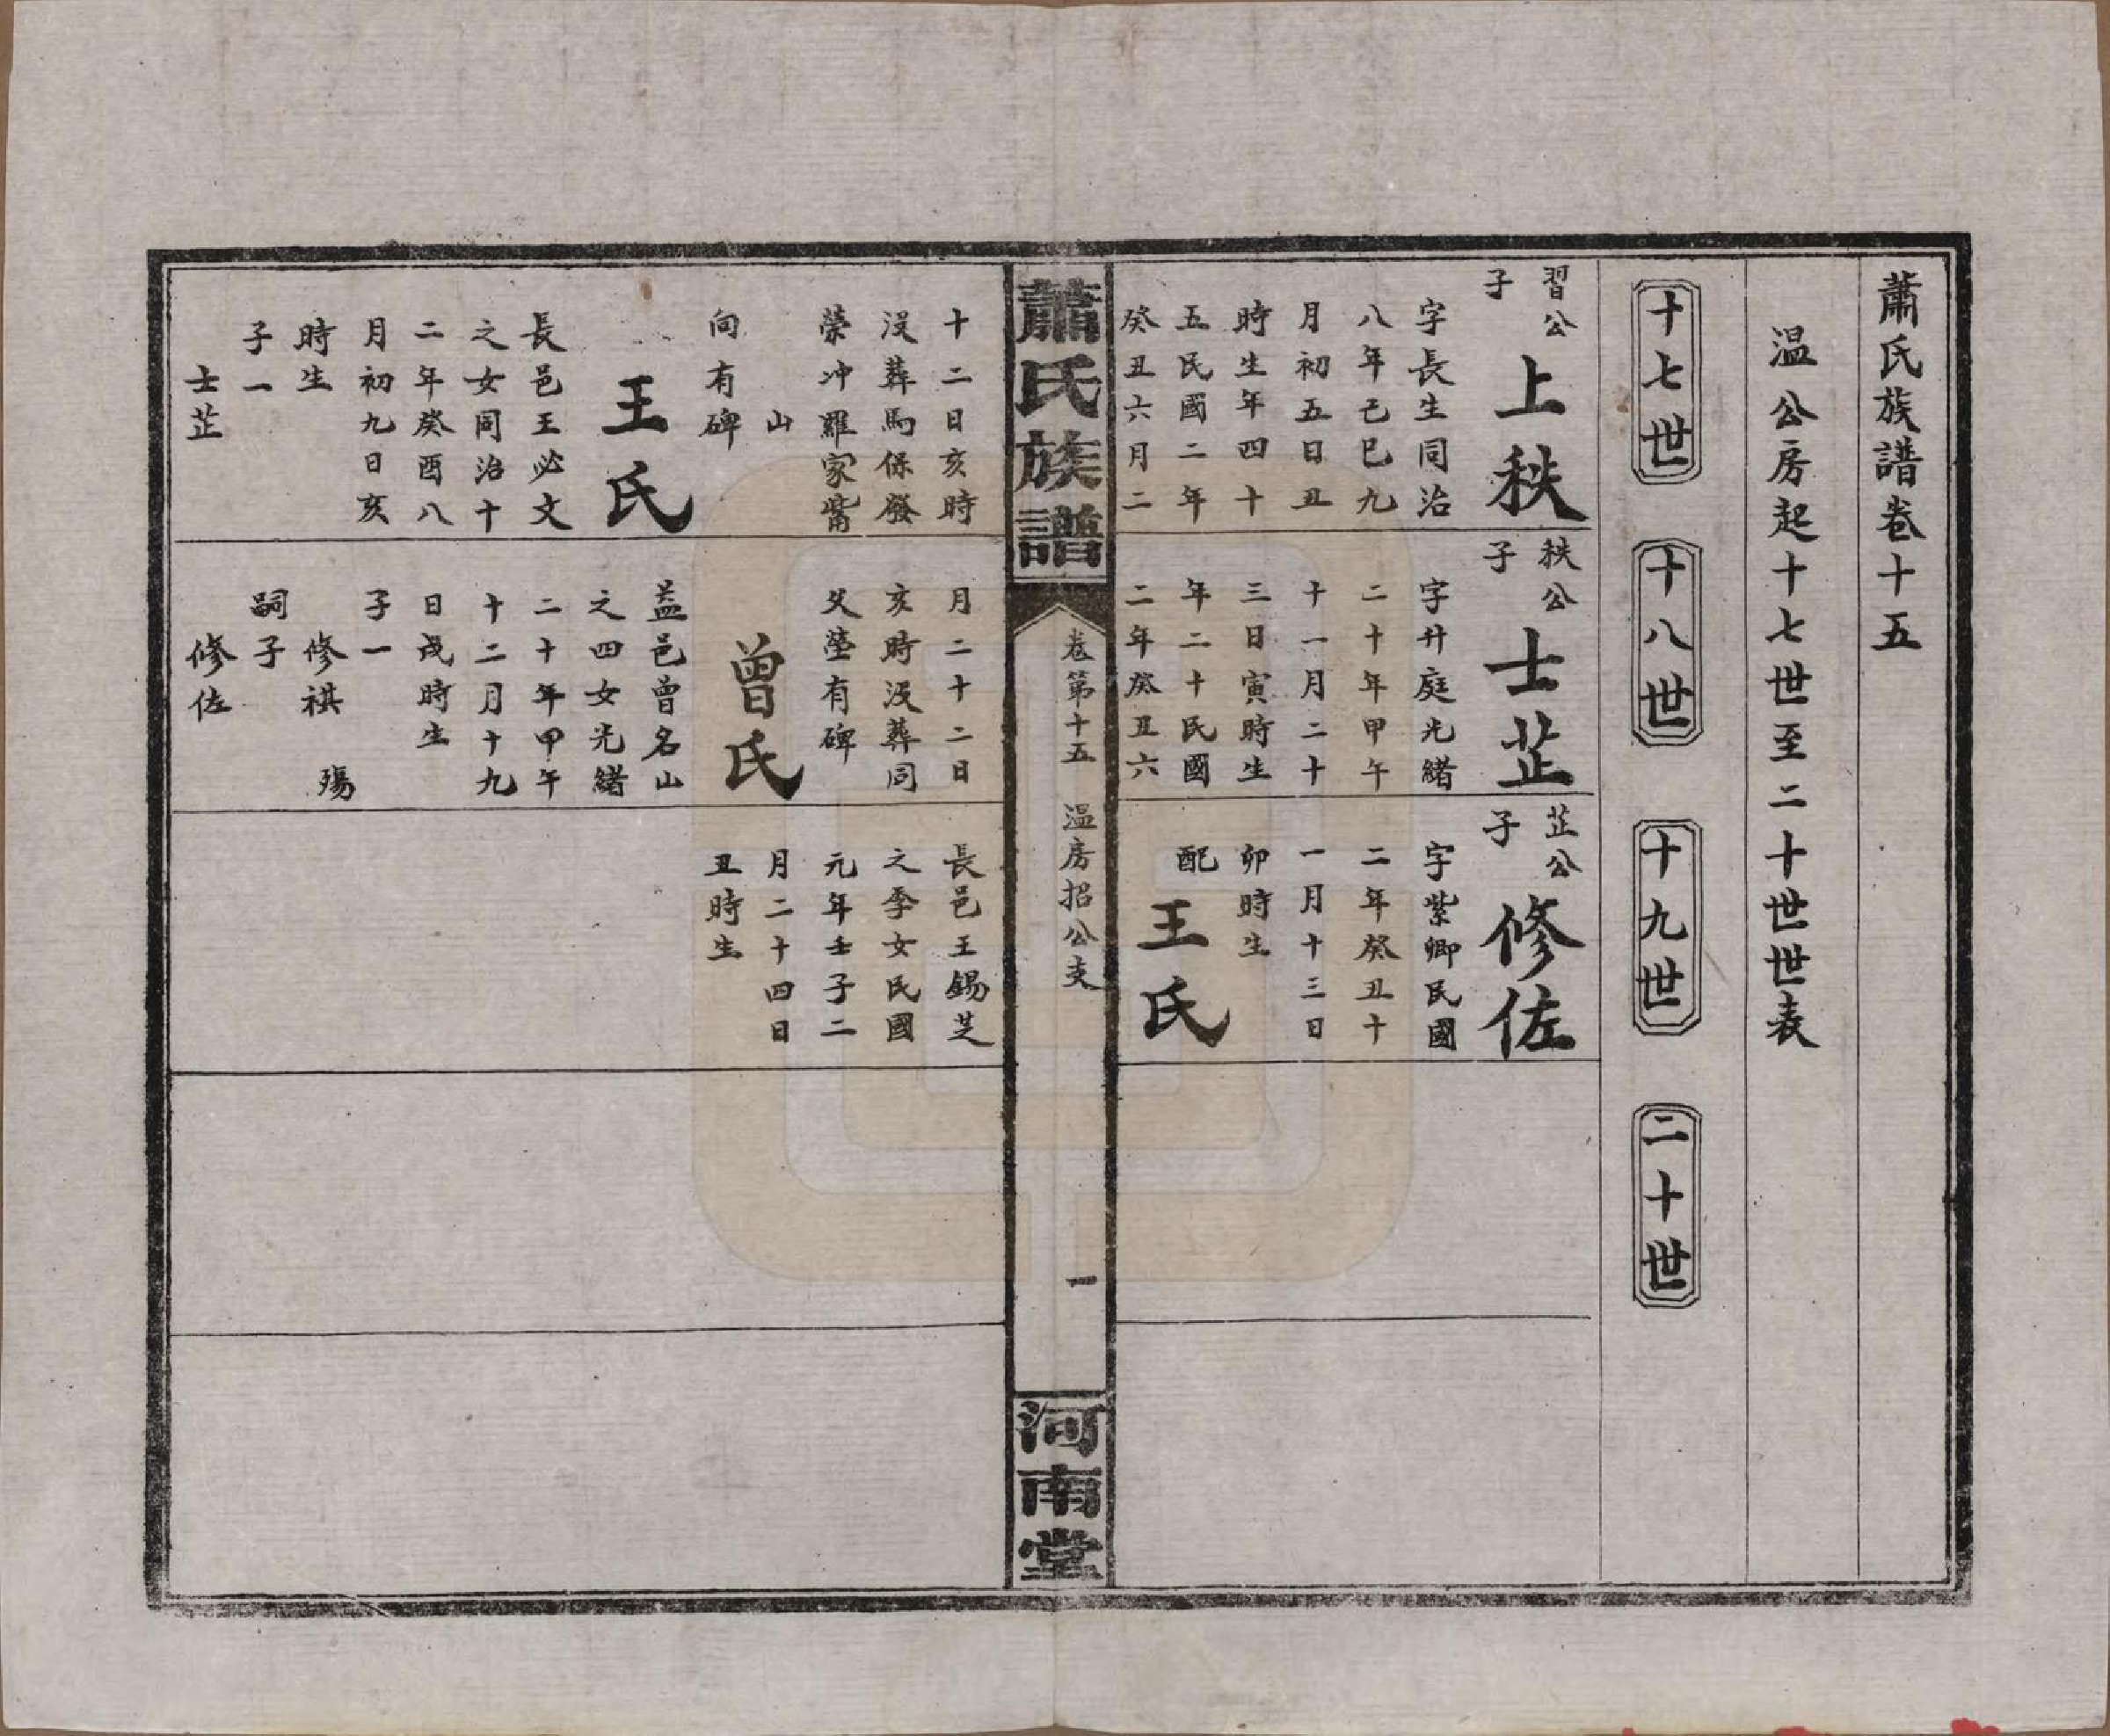 蕭氏族譜卷十五
温公房起十七世至二十世世表
十七世
十八世
十九世
二十世
習公
子
上秩
字長生同治
八年己巳九
月初五日丑
時生年四十
五民國二年
癸丑六月二
秩公
子
士芷
字廾庭光緒
二十年甲午
十一月二十
三日寅時生
年二十民國
二年癸丑六
芷公
子
修佐
字紫卿民國
二年癸丑十
一月十三日
卯時生
配
王氏
蕭氏族譜
卷第十五
温房招公支
一
河南堂
十二日亥時
沒葬馬保發
榮冲羅家嘴
山
向有碑
王氏
長邑王必文
之女同治十
二年癸酉八
月初九日亥
時生
子一
士芷
月二十二日
亥時沒葬同
父塋有碑
曾氏
益邑曾名山
之四女光緒
二十年甲午
十二月十九
日戌時生
子一
修祺 殤
嗣子
修佐
長邑王錫芝
之季女民國
元年壬子二
月二十四日
丑時生